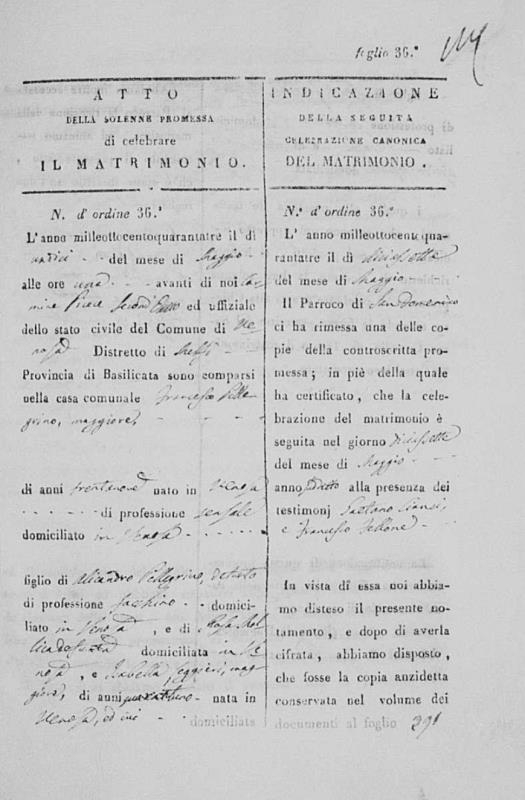 foglio 36.°
ATTO
DELLA SOLENNE PROMESSA
di celebrare
IL MATRIMONIO.
N. d'ordine 36.°
L'anno milleottocentoquarantatre il dì
undici del mese di Maggio
alle ore una avanti di noi
Secondo Eletto ed uffiziale
dello stato civile del Comune di Ve-
nosa Distretto di Melfi
Provincia di Basilicata sono comparsi
nella casa comunale Francesco Pelle-
grino, maggiore,
di anni trentanove nato in Venosa
di professione sensale
domiciliato in Venosa
figlio di Alisandro Pellegrino, defunto
di professione facchino domici-
liato in Venosa, e di Rosa
domiciliata in Ve-
nosa, e Isabella, mag-
giore, di anni nata in
Venosa, ed ivi domiciliata
INDICAZIONE
DELLA SEGUITA
CELEBRAZIONE CANONICA
DEL MATRIMONIO.
N.° d'ordine 36.°
L' anno milleottocentoqua-
rantatre il dì diciassette
del mese di Maggio
Il Parroco di San Domenico
ci ha rimessa una delle co-
pie della controscritta pro-
messa; in piè della quale
ha certificato, che la cele-
brazione del matrimonio è
seguita nel giorno diciassette
del mese di Maggio
anno suddetto alla presenza dei
testimonj Gaetano Cianci,
e Francesco Tellone
In vista di essa noi abbia-
mo disteso il presente no-
tamento, e dopo di averla
cifrata, abbiamo disposto,
che fosse la copia anzidetta
conservata nel volume dei
documenti al foglio 391